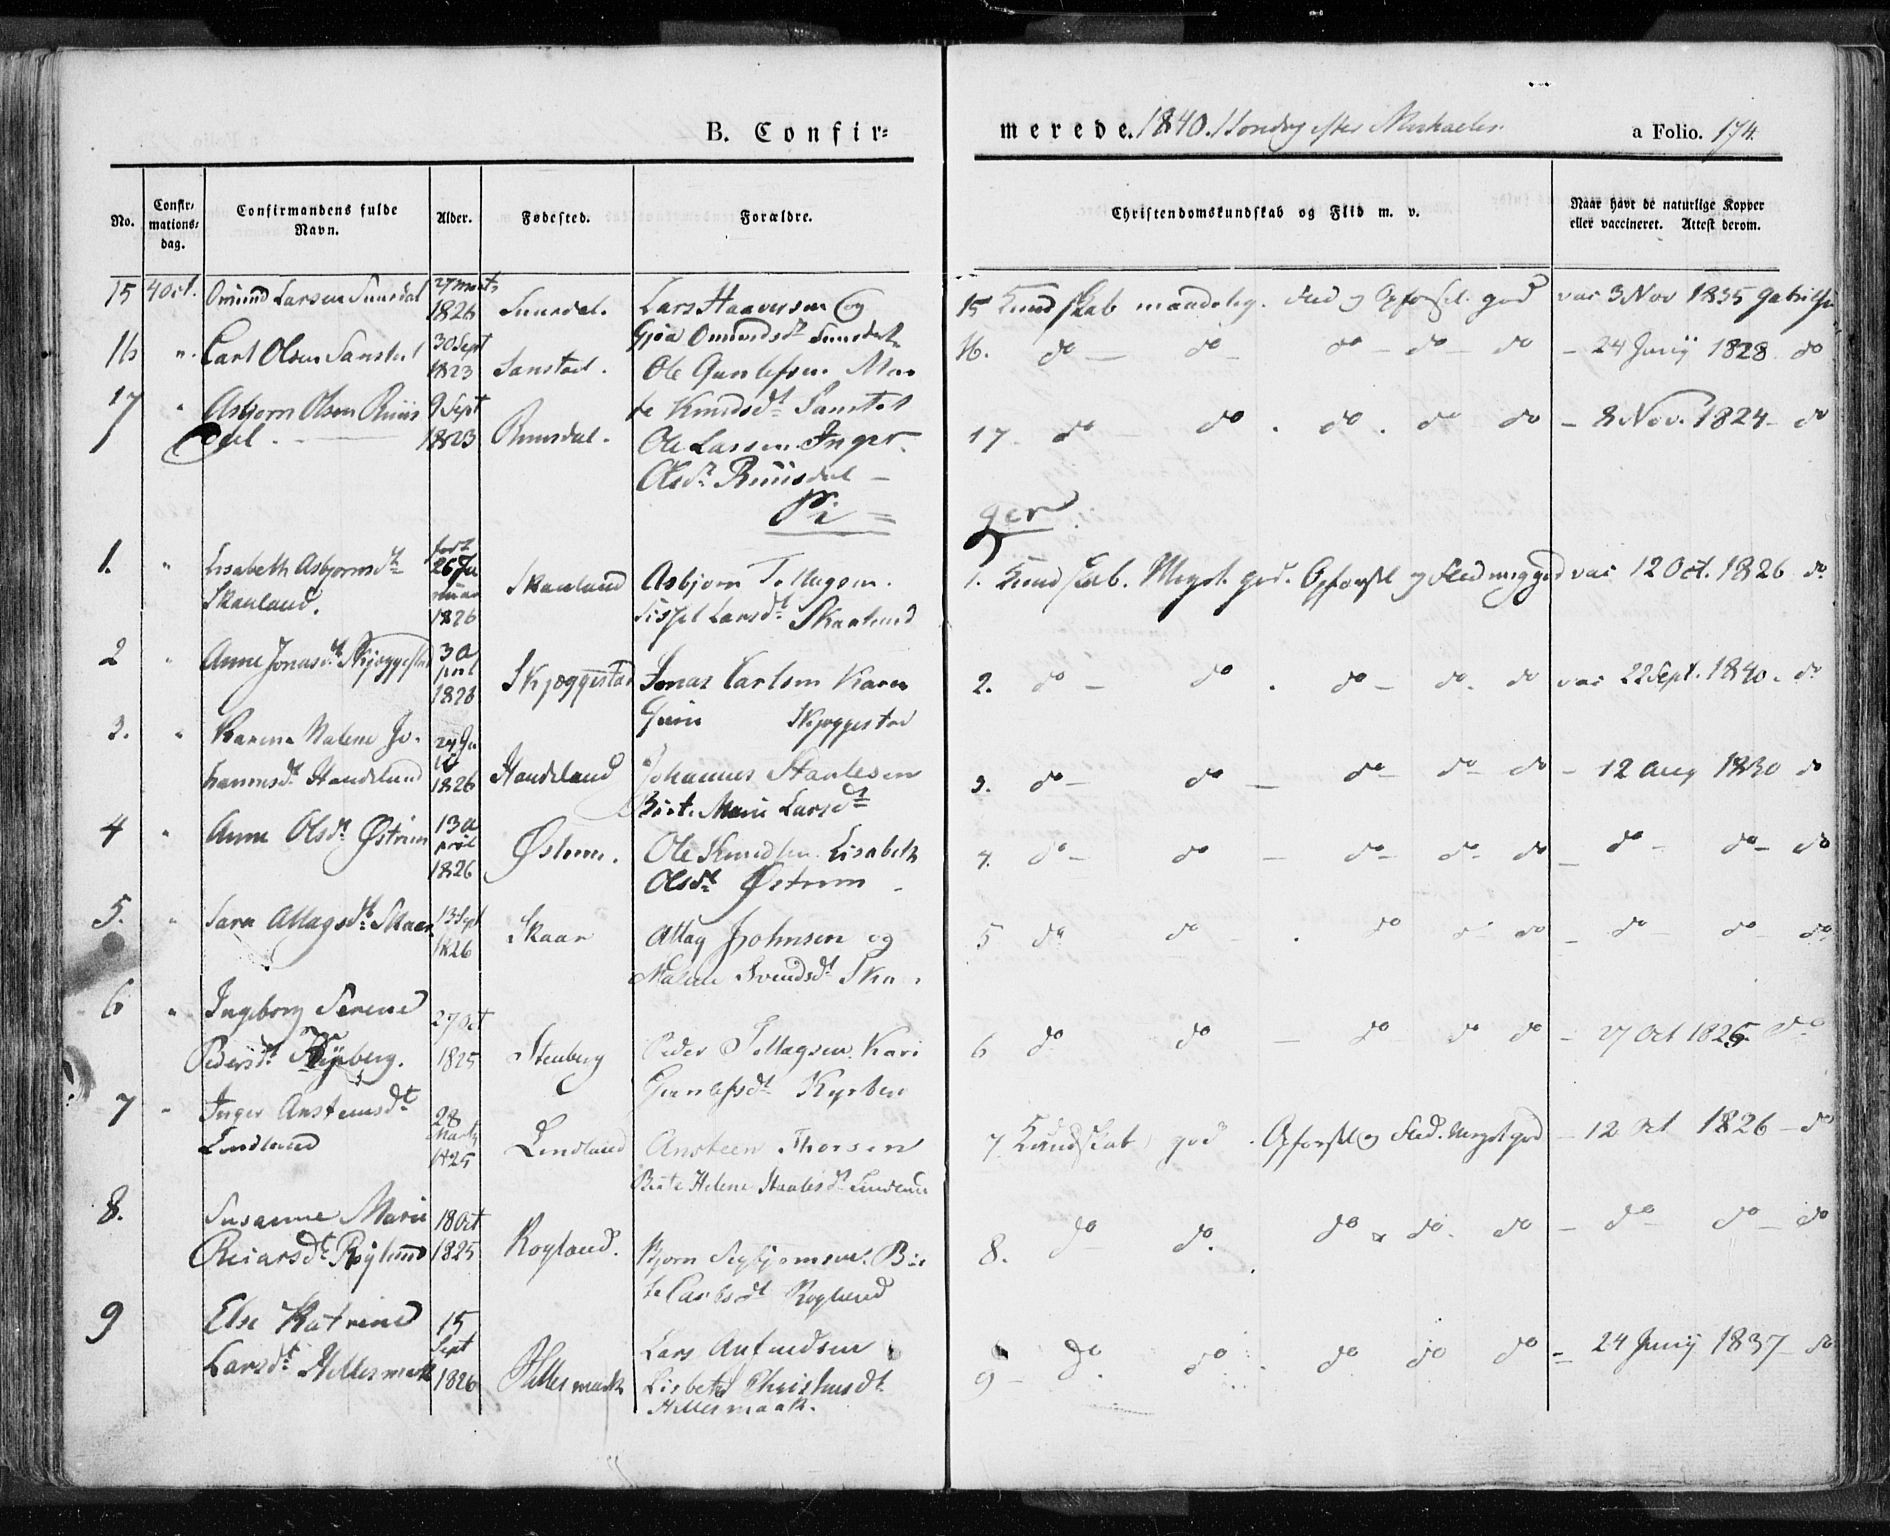 B. Confir-
merede. 1840. Søndag efter Michaelis
a Folio. 174.
No.
Confir-
mations-
dag.
Confirmandens fulde
Navn.
Alder.
Fødested.
Forældre.
Christendomskundskab og Flid m. v.
Naar havt de naturlige Kopper
eller vaccineret. Attest derom.
15 4 Oct. Omund Larsen 27 Marts
1826 Lars Haaversen og
15 Kundskab maadelig. Flid og Opførsel god vac 3 Nov 1835
16 " Carl Olsen Sanstøl 30 Sept
1823 Sanstøl. Ole Gunlefsen Mar
te Knudsdt Sanstøl
16. do do do do do 24 Junij 1828 do
17 " Asbjørn Olsen Ruus 9 Sept
dal. 1823 Ruusdal. Ole Larsen Inger
Olsdt Ruusdal
17. do do do do do 8 Nov. 1824 do
Pi
ger
1. " Lisabeth Asbjørnsdt født
26 Ja
nuar
Skanland. 1826 Skanland Asbjørn Tollagsen.
Sissel Larsdt Skanland
1. Kundskab. Meget god. Opførsel og Flid meg god vac 12 Oct. 1826 do
2 " Anne Jonasdt Skjeggestad 3 A
pril
1826 Skjeggestad Jonas Carlsen Karen
Skjeggestad
2. do do do do do vac 22 Sept. 1840. do
3. " Malene Jo-
hannesdt Haudeland 1826 Haudeland Johannes Staalesen
Birte Marie Larsdt
3. do do do do do 12 Aug 1830 do
4 " Anne Olsdt Østrem 13 A
pril
1826 Østrem. Ole Knudsen Lisabeth
Olsdt Østrem
4. do do do do do do do do
5. " Sara Attagsdt Skaar 13 Sept
1826 Skaar Attag Johnsen og
Malene Svendsdt Ska
5 do do do do do do do
6 " Ingeborg Serene 27 Oct
Pedersdt 1825 Stenberg Peder Tollagsen Kari
Gunlefsdt
6 do do do do do 27 Oct 1825 do
7 " Inger Anstensdt 28
Marts
Lindland 1825 Lindland Ansteen Thorsen
Birte Helene Staalesdt Lindland
7. Kundskab god. Opførsel og Flid. Meget god 12 Oct 1826 do
8. Susanne Marie 18 Oct
Reiarsdt Røylund 1825 Røyland. Bjørn
te Carlsdt Røylund
8. do do. do do do do do do
9 Else Katrine 15
Sept
Larsdt Hellesmark 1826 Hellesmark Lars Anfindsen
Lisbeth
Hellesmark.
9 do do do do do 24 Junij 1837 do